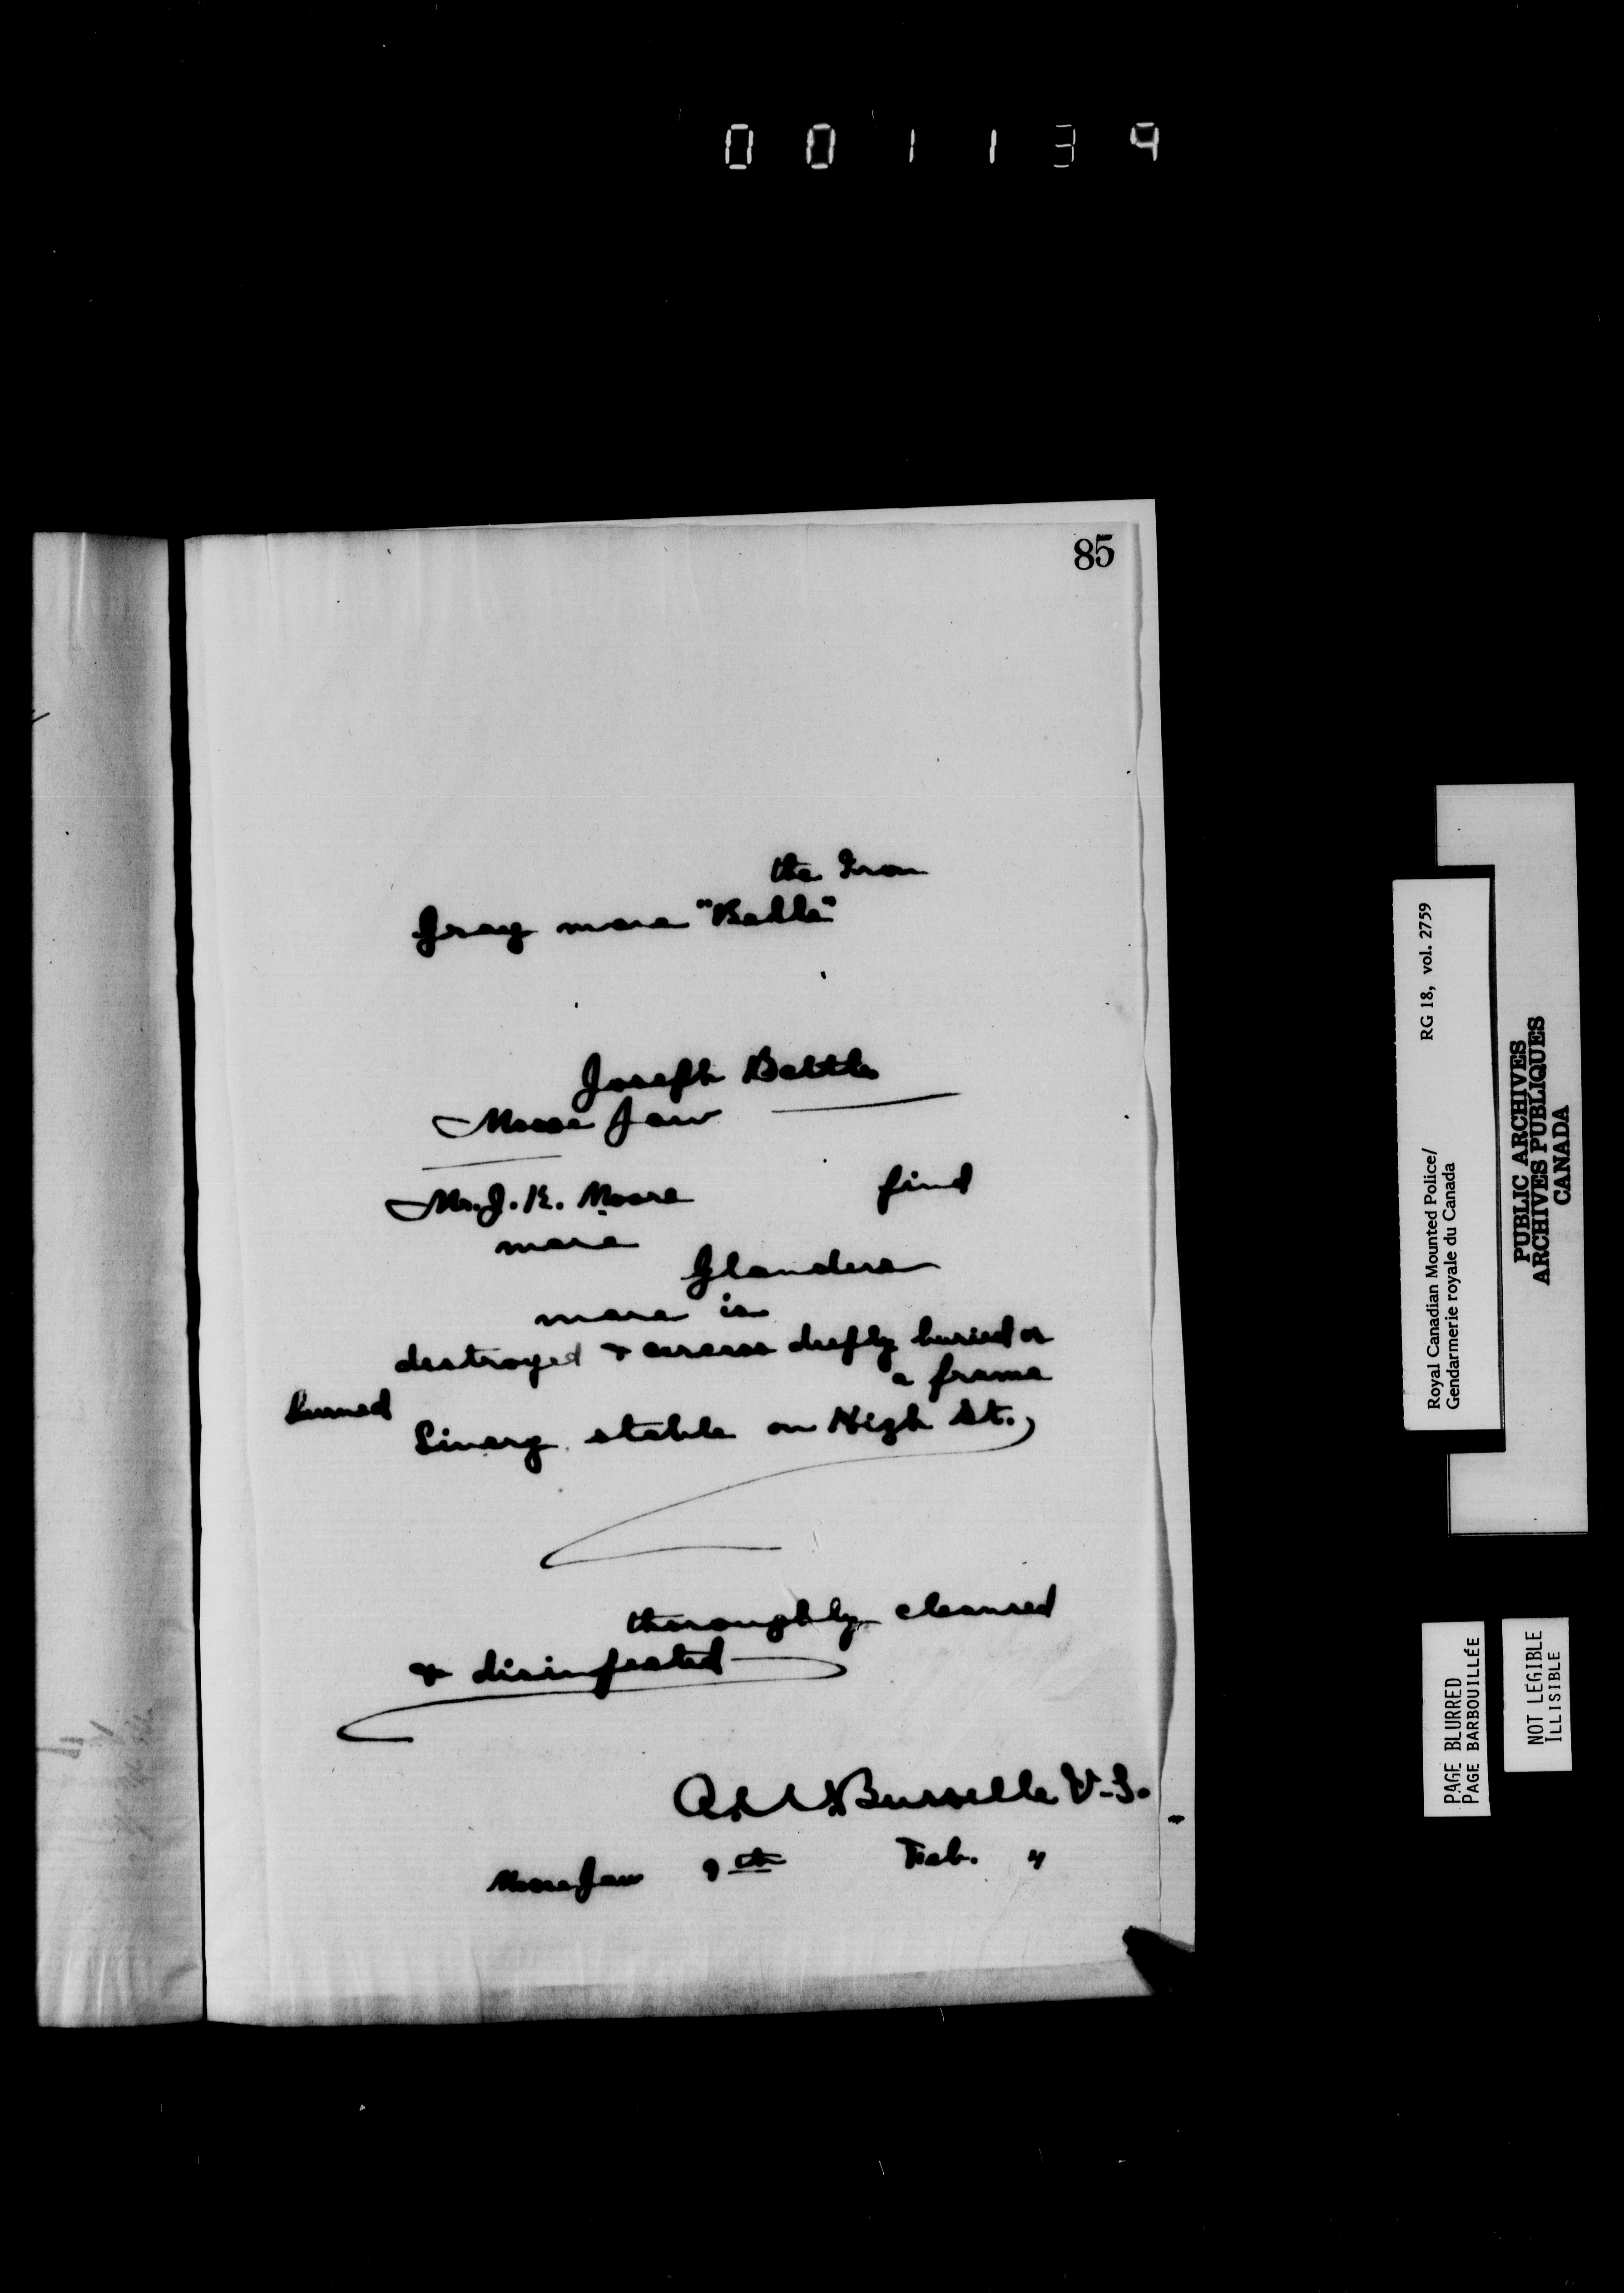 001139
85
the Iron
Gray mare "Belle"
Joseph Battle
Moose Jaw
Mr. J. K. Moore find
mare
Glanders
mare is
destroyed & carcass deeply buried or
burned a frame
Livery stable on High St.
thoroughly cleansed
& disinfected
Burnelle V.S.
Moose Jaw 9th Feb. "
Royal Canadian Mounted Police/ RG 18, vol. 2759
Gendarmerie royale du Canada
PUBLIC ARCHIVES
ARCHIVES PUBLIQUES
CANADA
PAGE BLURRED
PAGE BARBOUILLÉE
NOT LEGIBLE
ILLISIBLE